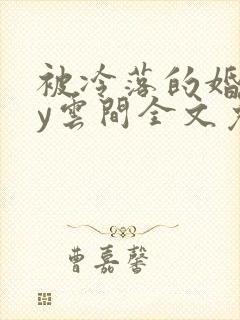 被冷落的婚
y雲間全文
曹嘉馨